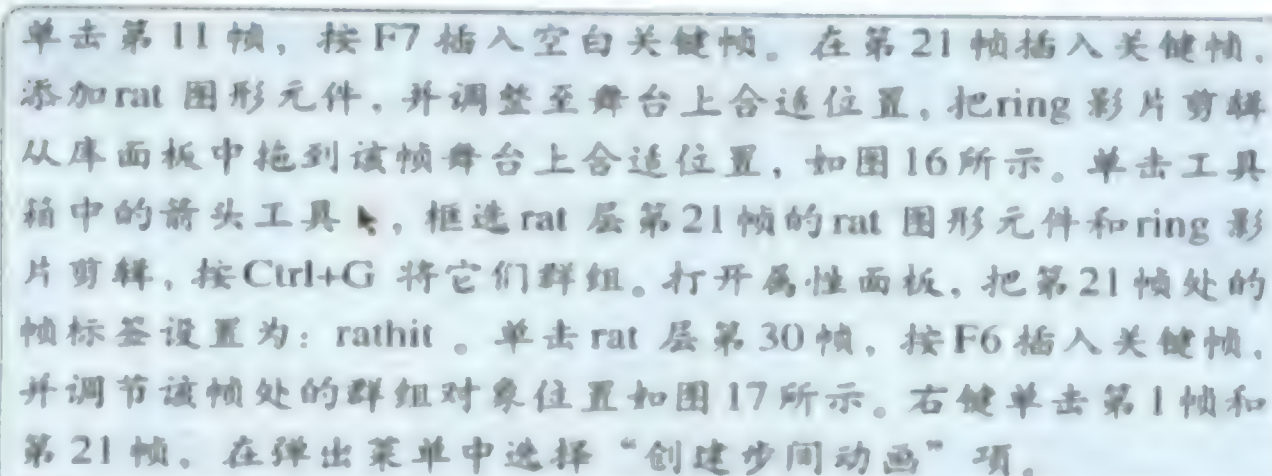 单击第 11 帧，按 F7 插入空白关键帧。在第 21 帧插入关键帧，
添加 rat 图形元件，并调整至舞台上合适位置，把 ring 影片剪辑
从库面板中拖到该帧舞台上合适位置，如图 16 所示。单击工具
箱中的箭头工具，框选 rat 层第 21 帧的 rat 图形元件和 ring 影
片剪辑，按 Ctrl+G 将它们群组。打开属性面板，把第 21 帧处的
帧标签设置为：rathit 。单击 rat 层第 30 帧，按 F6 插入关键帧，
并调节该帧处的群组对象位置如图 17 所示。右键单击第 1 帧和
第 21 帧，在弹出菜单中选择“创建步间动画”项。